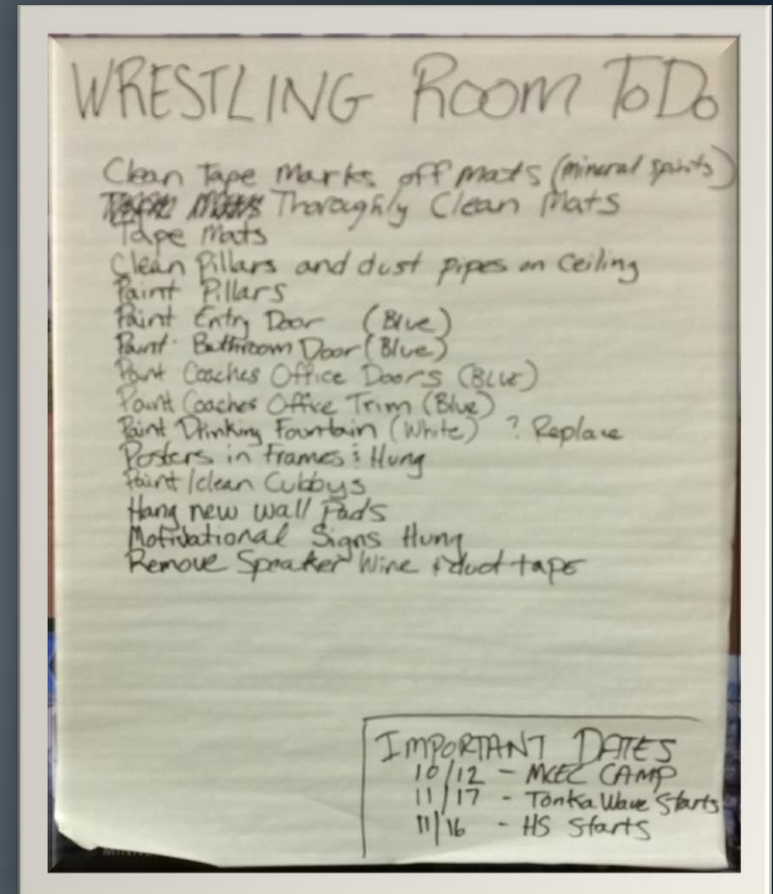 WRESTLING ROOM TO DO
Clean Tape Marks off Mats (mineral spirits)
Thoroughly Clean Mats
Tape Mats
Clean Pillars and dust pipes on Ceiling
Paint Pillars
Paint Entry Door (Blue)
Paint Bathroom Door (Blue)
Paint Coaches Office Doors (Blue)
Paint Coaches Office Trim (Blue)
Paint Drinking Fountain (White) ? Replace
Posters in Frames & Hung
Paint/clean Cubbys
Hang new wall Pads
Motivational Signs Hung
Remove Speaker Wire & duct tape
IMPORTANT DATES
10/12 - MCEC CAMP
11/17 - Tonka Wave Starts
11/16 - HS Starts